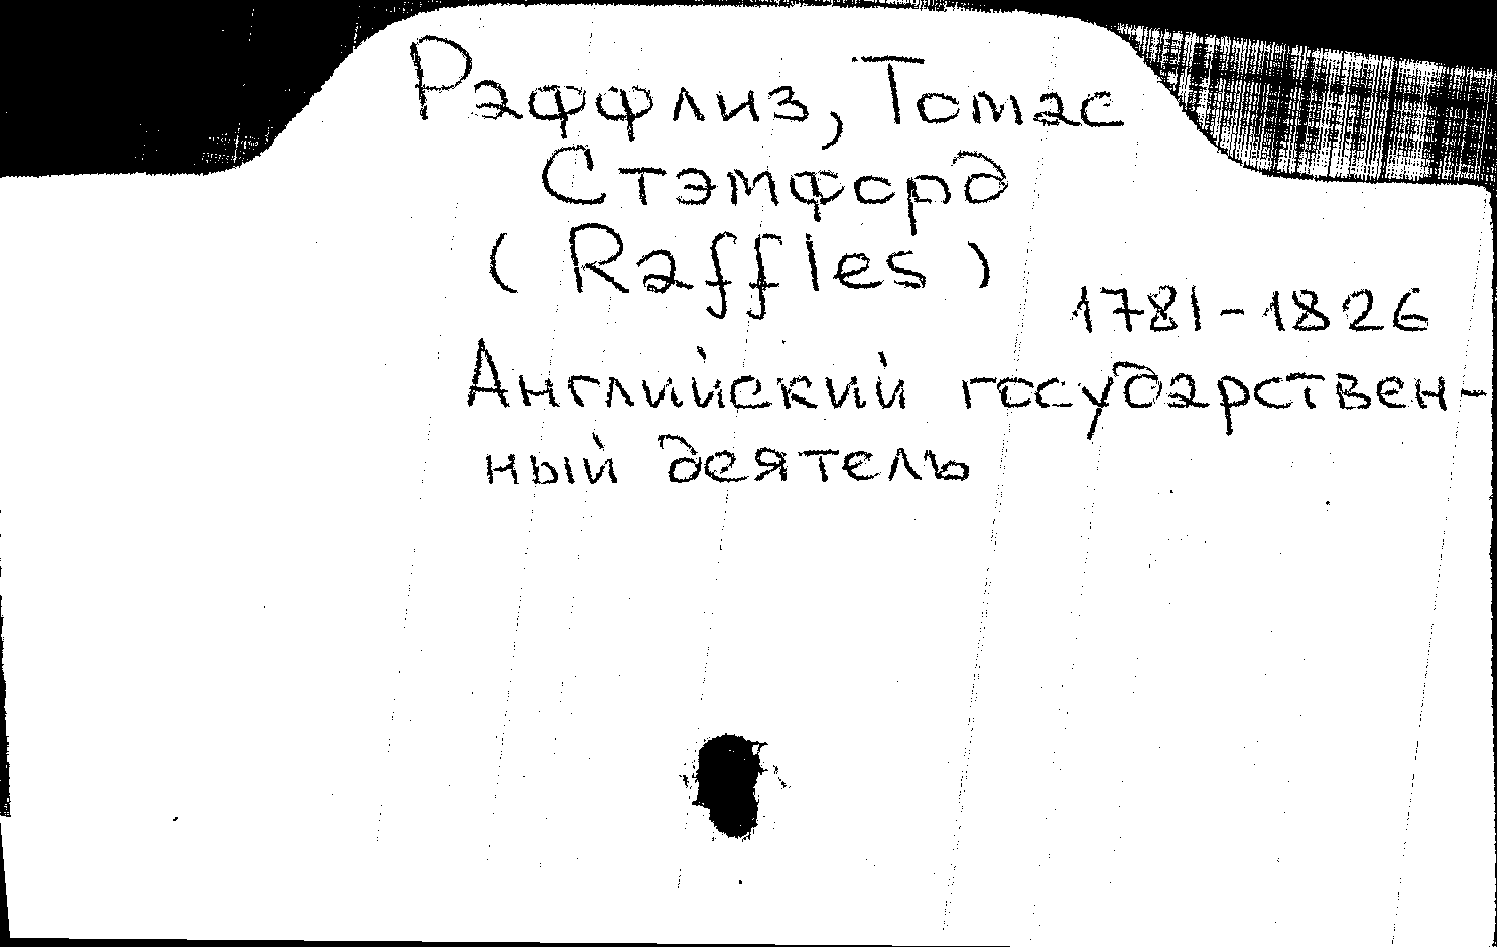 Раффлиз, Томас
Стэмфорд
(Raffles)
1781-1826
Английский государствен-
ный деятель